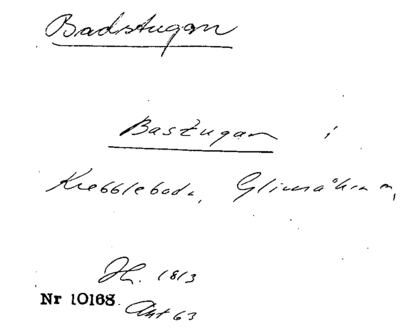 Badstugan
Bastugan i
Krebbleboda, Glimåkra m,
H. 1813
Nr 10168.
Akt 63